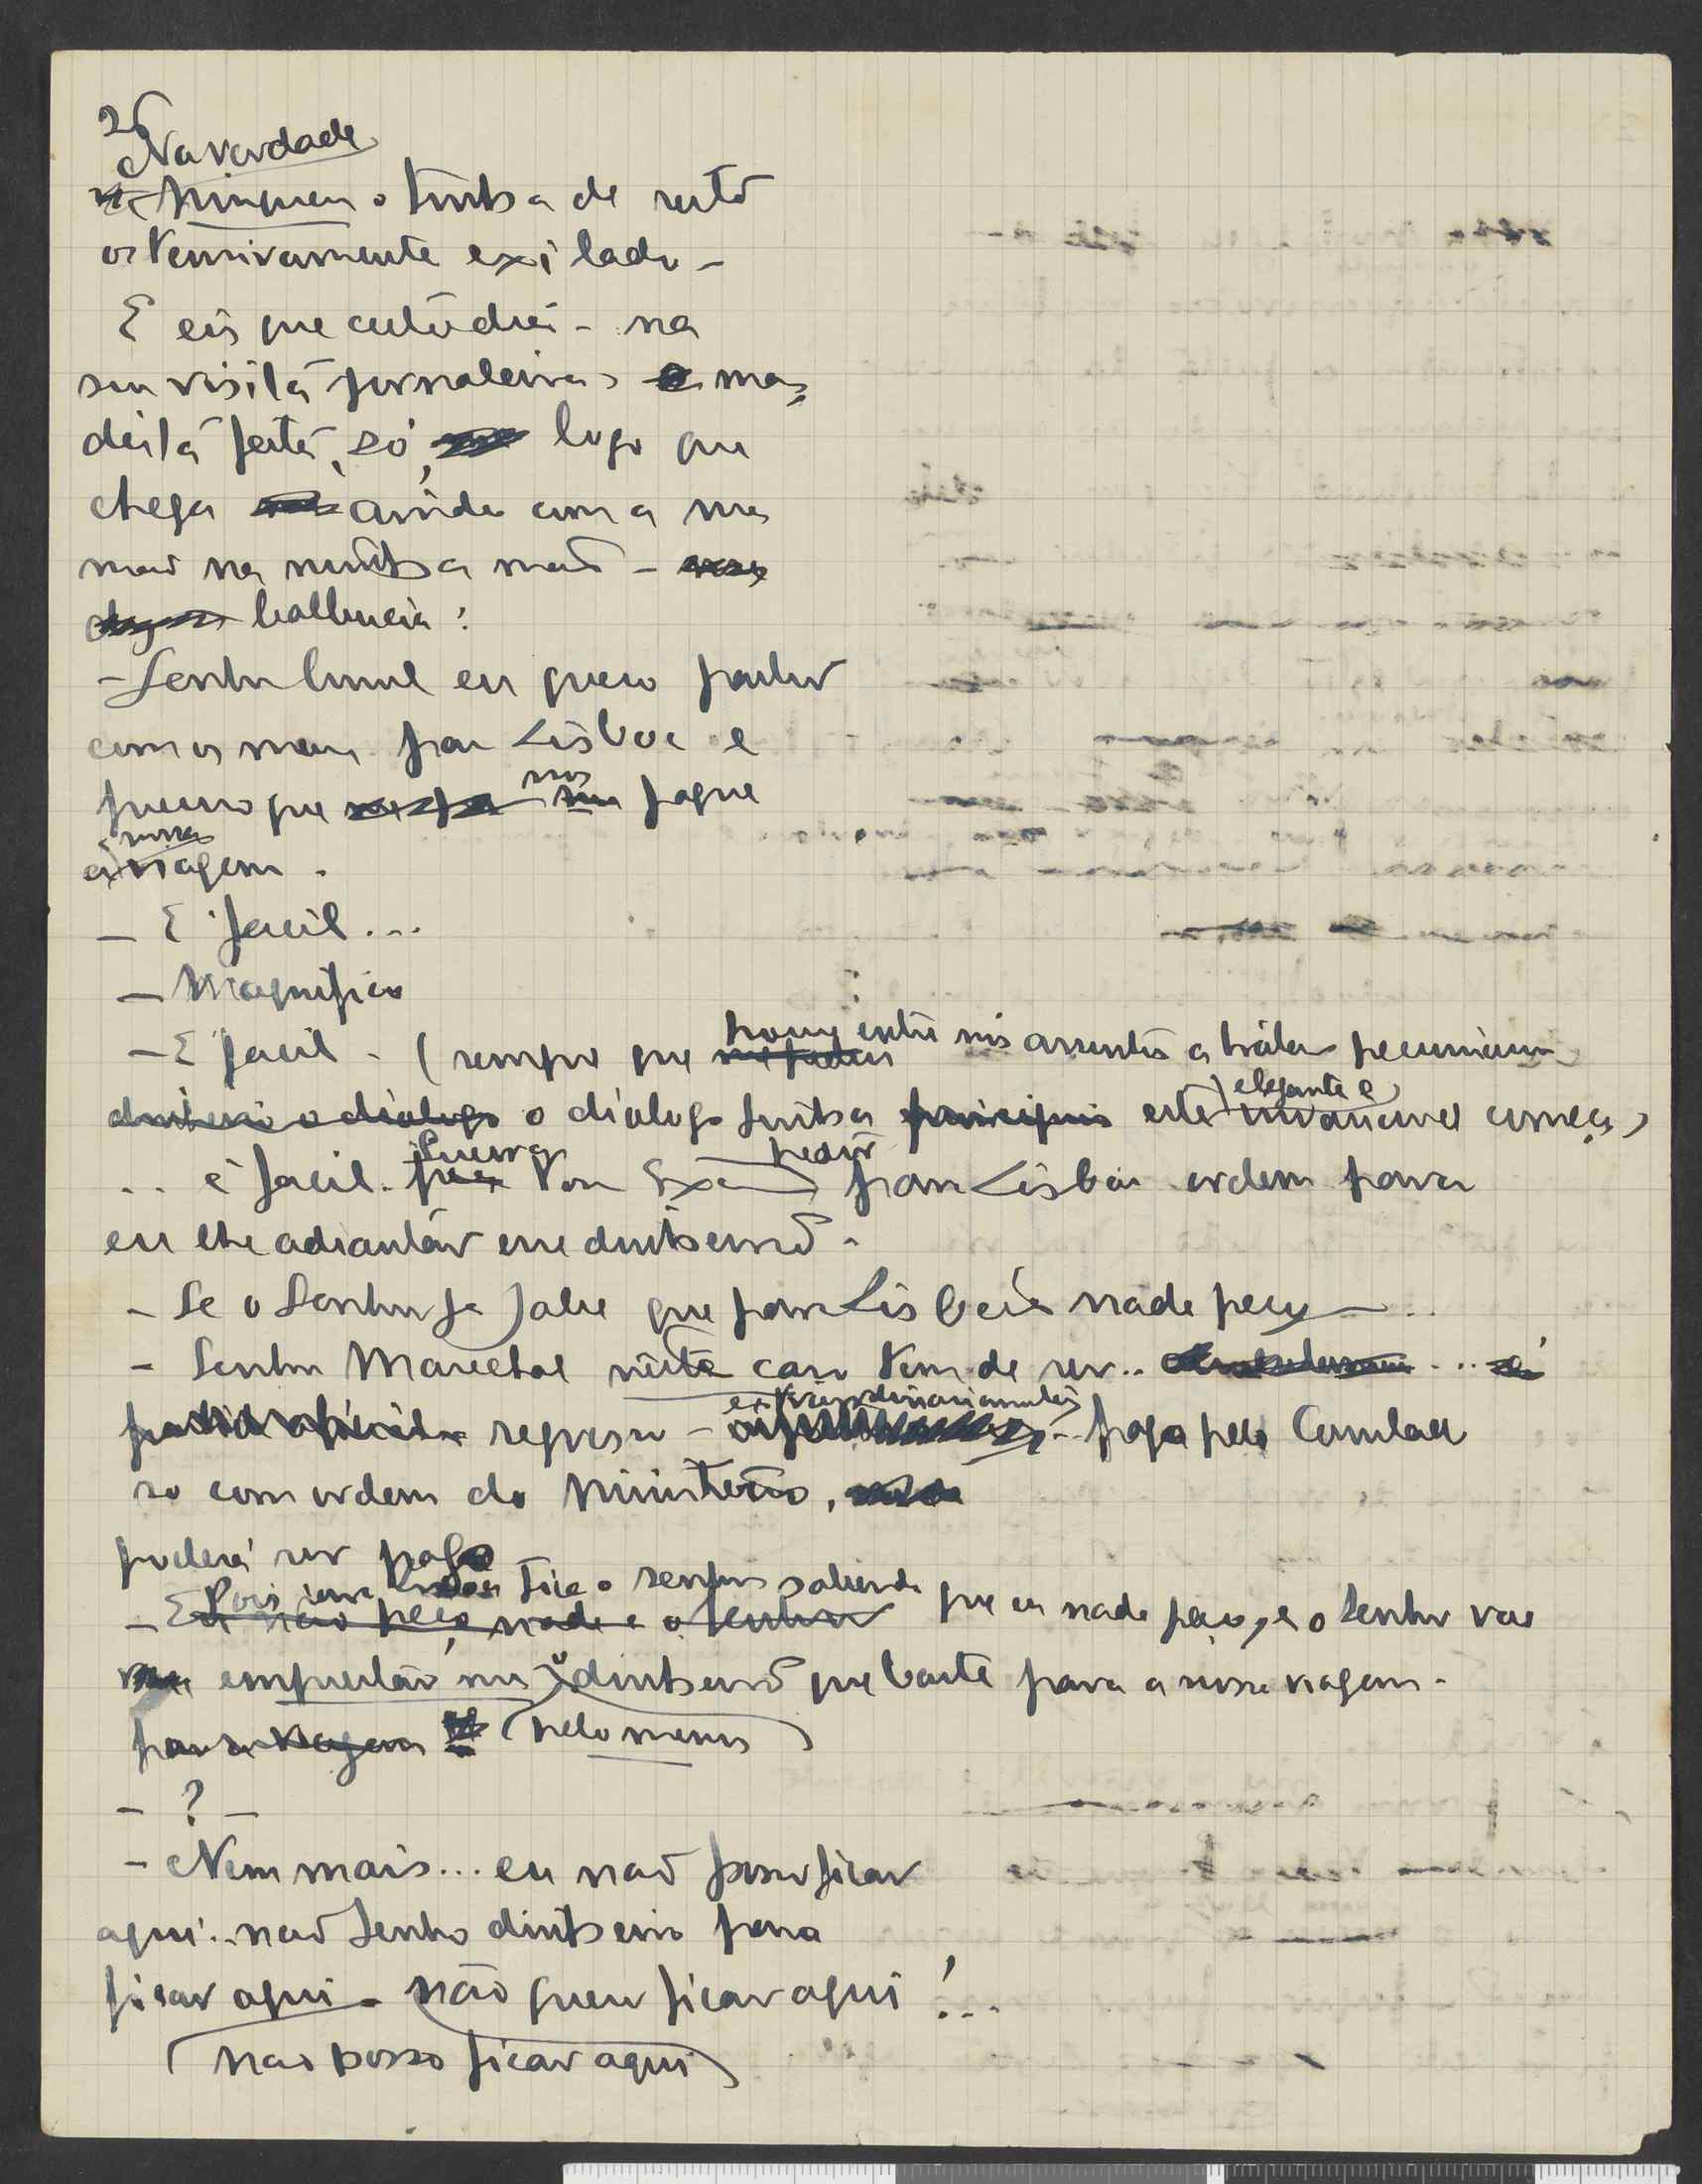 2
Na verdade
Ninguem o tinha de resto
ostensivamente exilado -
E eis que certo dia - na
sua visita jornaleira, e ma-
deita feita, só, logo que
chega ainda com a sua
mão na minha mão -
balbucia:
- Senhor Consul eu quero partir
com os meus para Lisboa e
preciso que nos pague
a nossa viagem.
- E' facil...
- Magnifico
- E' facil - (sempre que houve entre nós assuntos a tratar pecuniarios
dinheiro o dialogo o dialogo tinha principio este elegante e invariavel começo)
.. é facil. Queira Vossa Exa pedir para Lisboa ordem para
eu lhe adiantar esse dinheiro -
- Se o Senhor já sabe que para Lisboa nada peço - ..
- Senhor Marechal neste caso tem de ser.. ...
regresso - extraordinariamente - pago pelo Consulado
so com ordem do Ministerio,
poderá ser pago
- Pois fica o senhor sabendo que eu nada peço, e o Senhor vae
Eu não peço nada e o Senhor
emprestar-me o dinheiro que baste para a nossa viagem -
para a viagem (pelo menos)
- ? -
- Nem mais... eu não posso ficar
aqui.. não tenho dinheiro para
ficar aqui - não quero ficar aqui!...
(não posso ficar aqui)